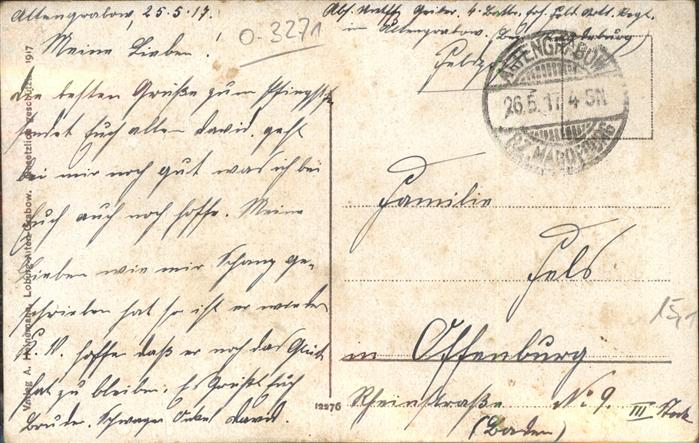 Altengrabow, 25.5.17.
O-3271
Meine Lieben!
Die besten Grüße zum Pfingstfest
sendet Euch allen David. geht
bei mir noch gut was ich bei
Euch auch noch hoffe. Meine
Lieben wie mir Schanz ge-
schrieben hat so ist er wieder
hoffen daß er noch das Glück
hat zu bleiben. Es Grüßt Euch
Bruder. Schwager Onkel David.
in Altengrabow,
ALTENGRABOW
26.5.17. 4-5N
BZ. MAGDEBURG
Familie
Fels
in Offenburg
Rheinstraße No 9. III Stock
(Baden)
15,-
12276
Verlag A. Heinemann, Loburg-Alten Grabow. Gesetzlich geschützt 1917